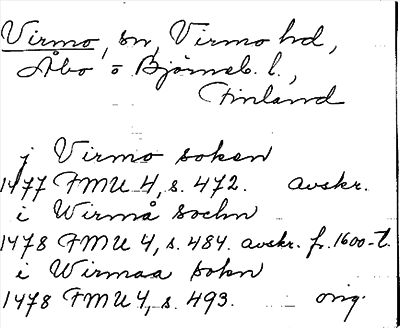 Virmo, sn, Virmo hd,
Åbo o Björneb. l.,
Finland
j Virmo soken
1477 FMU 4, s. 472. avskr.
i Wirmå sochn
1478 FMU 4, s. 484. avskr. fr. 1600-t.
i Wirmaa sokn
1478 FMU 4, s. 493. orig.